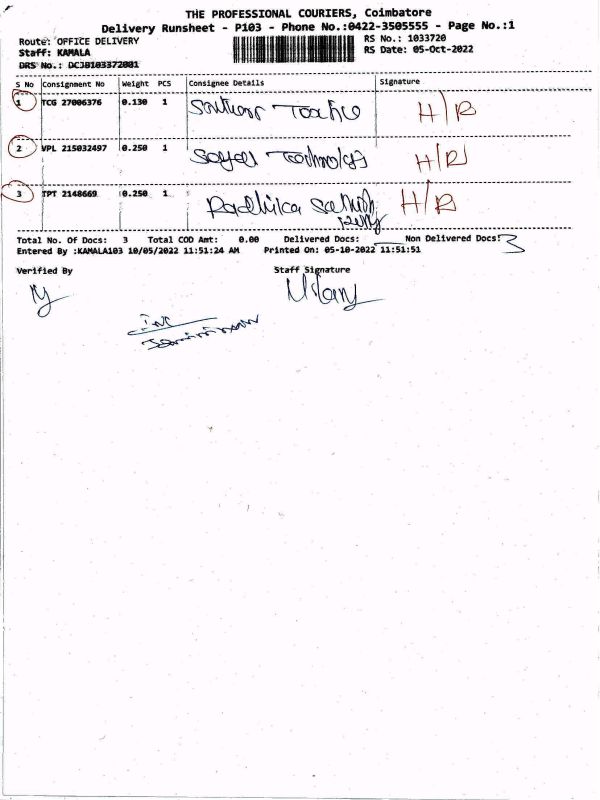 THE PROFESSIONAL COURIERS, Coimbatore
Delivery Runsheet - P103 - Phone No.:0422-3505555 - Page No.:1
Route: OFFICE DELIVERY RS No.: 1033720
Staff: KAMALA RS Date: 05-Oct-2022
DRS No.: DCJB103372001
S No Consignment No Weight PCS Consignee Details Signature
1 TCG 27006376 0.130 1 H/R
2 VPL 215032497 0.250 1 H/R
3 TPT 2148669 0.250 1 Radhika H/R
Total No. Of Docs: 3 Total COD Amt: 0.00 Delivered Docs: Non Delivered Docs: 3
Entered By :KAMALA103 10/05/2022 11:51:24 AM Printed On: 05-10-2022 11:51:51
Verified By Staff Signature